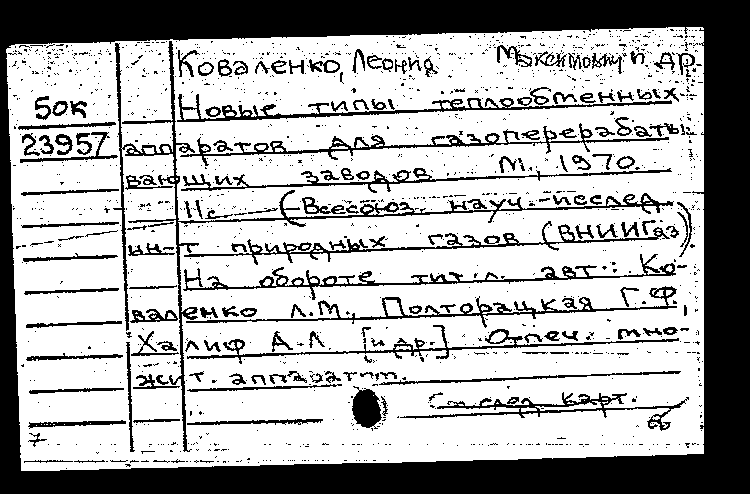 Коваленко, Леонид Максимович и др.
50к Новые типы теплообменных
23957 аппаратов для газоперерабаты-
вающих заводов. М., 1970.
11с. (Всесоюз. науч.-исслед.
ин-т природных газов (ВНИИГаз)).
На обороте тит. л. авт.: Ко-
валенко Л.М., Полторацкая Г.Ф.,
Халиф А.Л. [и др.] Отпеч. мно-
жит. аппаратом.
См. след. карт.
7